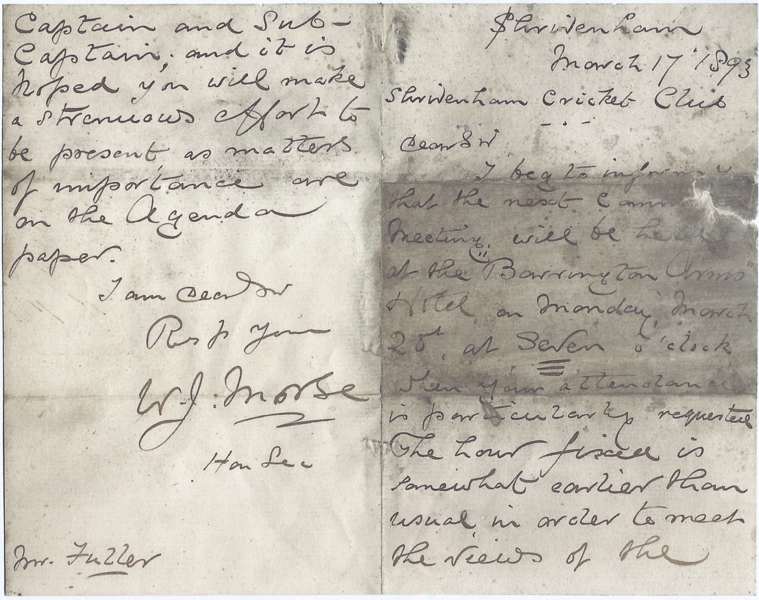 Shrivenham
March 17 1893
Shrivenham Cricket Club
Dear Sir
I beg to inform
that the next
Meeting, will be held
at the "Barrington Arms"
Hotel, on Monday, March
at Seven o'clock
when your attendance
is particularly requested
The hour fixed is
somewhat earlier than
usual, in order to meet
the views of the
Captain and Sub-
Captain, and it is
hoped you will make
a strenuous effort to
be present, as matters
of importance are
on the Agenda
paper.
I am Dear Sir
Resp Yours
W.J. Morse
Hon Sec
Mr. Fuller